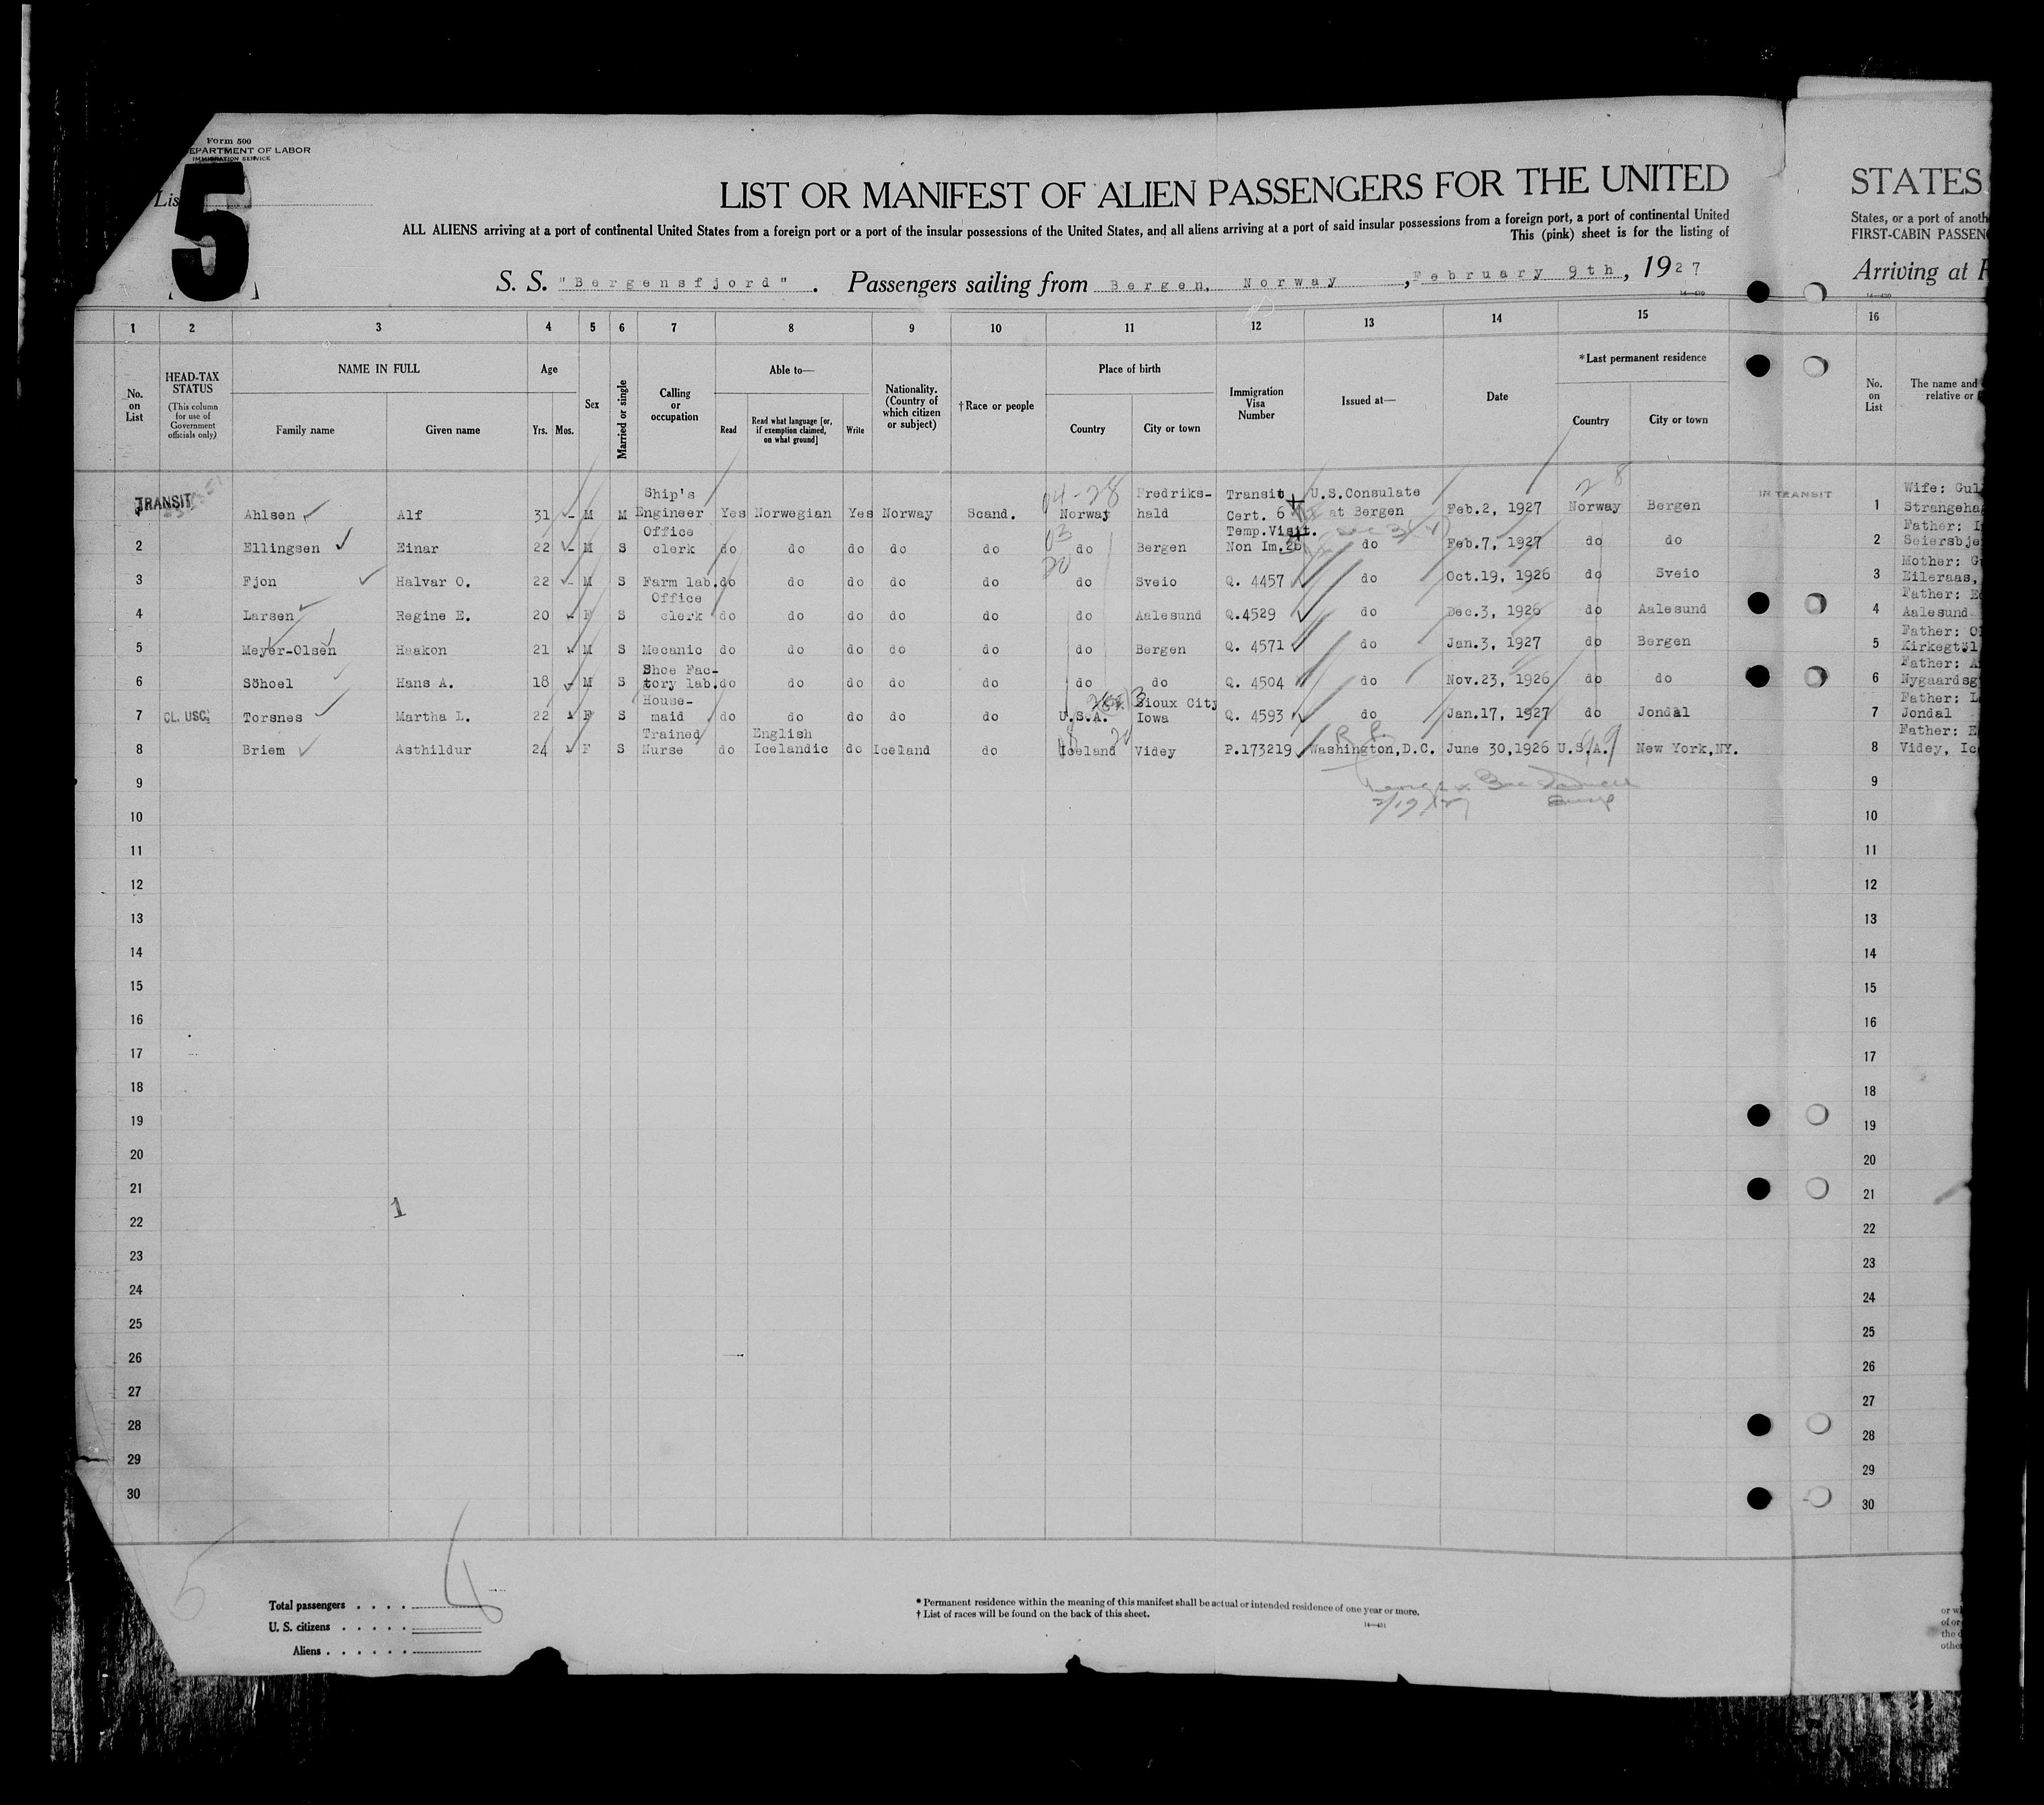 Form 500
DEPARTMENT OF LABOR
IMMIGRATION SERVICE
Lis
5
LIST OR MANIFEST OF ALIEN PASSENGERS FOR THE UNITED
STATES
ALL ALIENS arriving at a port of continental United States from a foreign port or a port of the insular possessions of the United States, and all aliens arriving at a port of said insular possessions from a foreign port, a port of continental United
States, or a port of anoth
This (pink) sheet is for the listing of
FIRST-CABIN PASSEN
S. S. "Bergensfjord". Passengers sailing from Bergen, Norway, February 9th, 1927
Arriving at
1 2 3 4 5 6 7 8 9 10 11 12 13 14 15 16
No. on List
HEAD-TAX STATUS (This column for use of Government officials only)
NAME IN FULL
Family name Given name
Age
Yrs. Mos.
Sex
Married or single
Calling or occupation
Able to—
Read Read what language [or, if exemption claimed, on what ground] Write
Nationality. (Country of which citizen or subject)
†Race or people
Place of birth
Country City or town
Immigration Visa Number
Issued at—
Date
*Last permanent residence
Country City or town
No. on List
The name and
relative or
TRANSIT 1 Ahlsen Alf 31 M M Ship's Engineer Yes Norwegian Yes Norway Scand. Norway Fredriks-hald Transit Cert. 6 U.S.Consulate at Bergen Feb.2, 1927 Norway Bergen IN TRANSIT 1 Wife: Gul Strangeha
2 Ellingsen Einar 22 M S Office clerk do do do do do do Bergen Temp.Visit. Non Im.26 do Feb.7, 1927 do do 2 Father: Seiersbje
3 Fjon Halvar O. 22 M S Farm lab. do do do do do do Sveio Q. 4457 do Oct.19, 1926 do Sveio 3 Mother: G Eileraas,
4 Larsen Regine E. 20 F S Office clerk do do do do do do Aalesund Q.4529 do Dec.3, 1926 do Aalesund 4 Father: Aalesund
5 Meyer-Olsen Haakon 21 M S Mecanic do do do do do do Bergen Q. 4571 do Jan.3, 1927 do Bergen 5 Father: O
6 Söhoel Hans A. 18 M S Shoe Fac-tory lab. do do do do do do do Q. 4504 do Nov.23, 1926 do do 6 Father: A Nygaardsg
7 CL. USC. Torsnes Martha L. 22 F S House-maid do do do do do U.S.A. Sioux City Iowa Q. 4593 do Jan.17, 1927 do Jondal 7 Father: L Jondal
8 Briem Asthildur 24 F S Trained Nurse do English Icelandic do Iceland do Iceland Videy P.173219 Washington,D.C. June 30,1926 U.S.A. New York,NY. 8 Father: E Videy, Ic
9 9
10 10
11 11
12 12
13 13
14 14
15 15
16 16
17 17
18 18
19 19
20 20
21 21
22 22
23 23
24 24
25 25
26 26
27 27
28 28
29 29
30 30
Total passengers
U. S. citizens
Aliens
* Permanent residence within the meaning of this manifest shall be actual or intended residence of one year or more.
† List of races will be found on the back of this sheet.
14—431